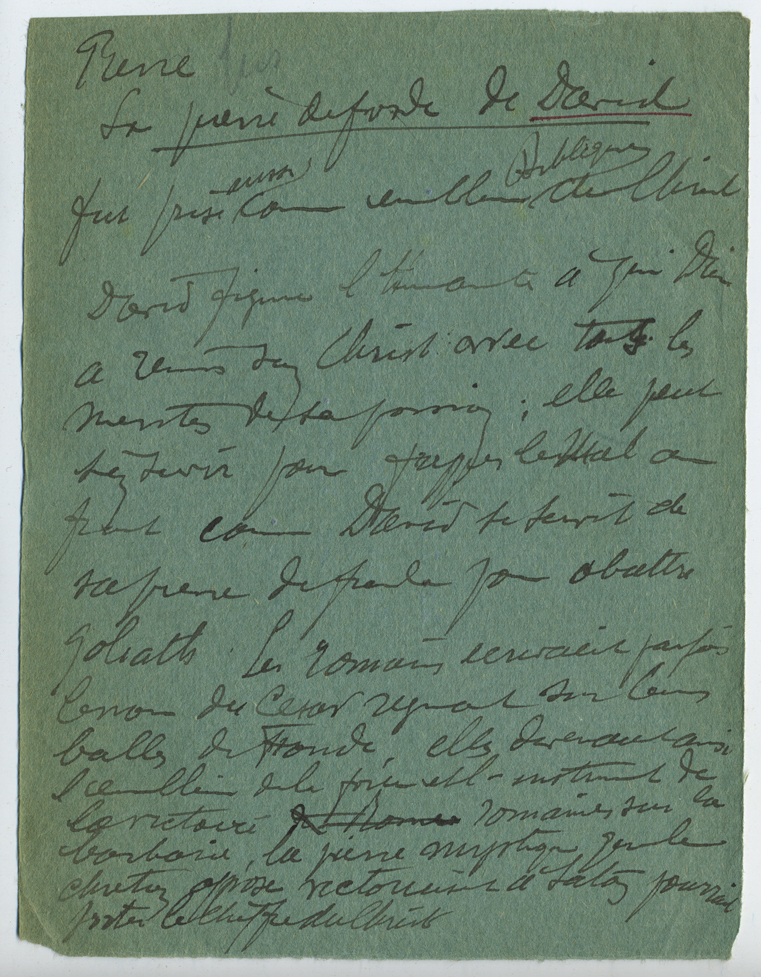 Pierre
La pierre de fronde de David
fut prise aussi comme emblème (biblique) du Christ
David figure l'Humanité à qui Dieu
a remis son Christ avec tous les
mérites de sa passion ; elle peut
s'en servir pour frapper le Mal au
front comme David se servit de
sa pierre de fronde pour abattre
Goliath. Les romains écrivaient parfois
le nom du César régnant sur leurs
balles de Fronde, elles devenaient ainsi
l'emblème de la force et l'instrument de
la victoire de Rome romaine sur la
barbarie, la pierre mystique que le
chrétien oppose victorieusement à Satan pourrait
porter le chiffre du Christ